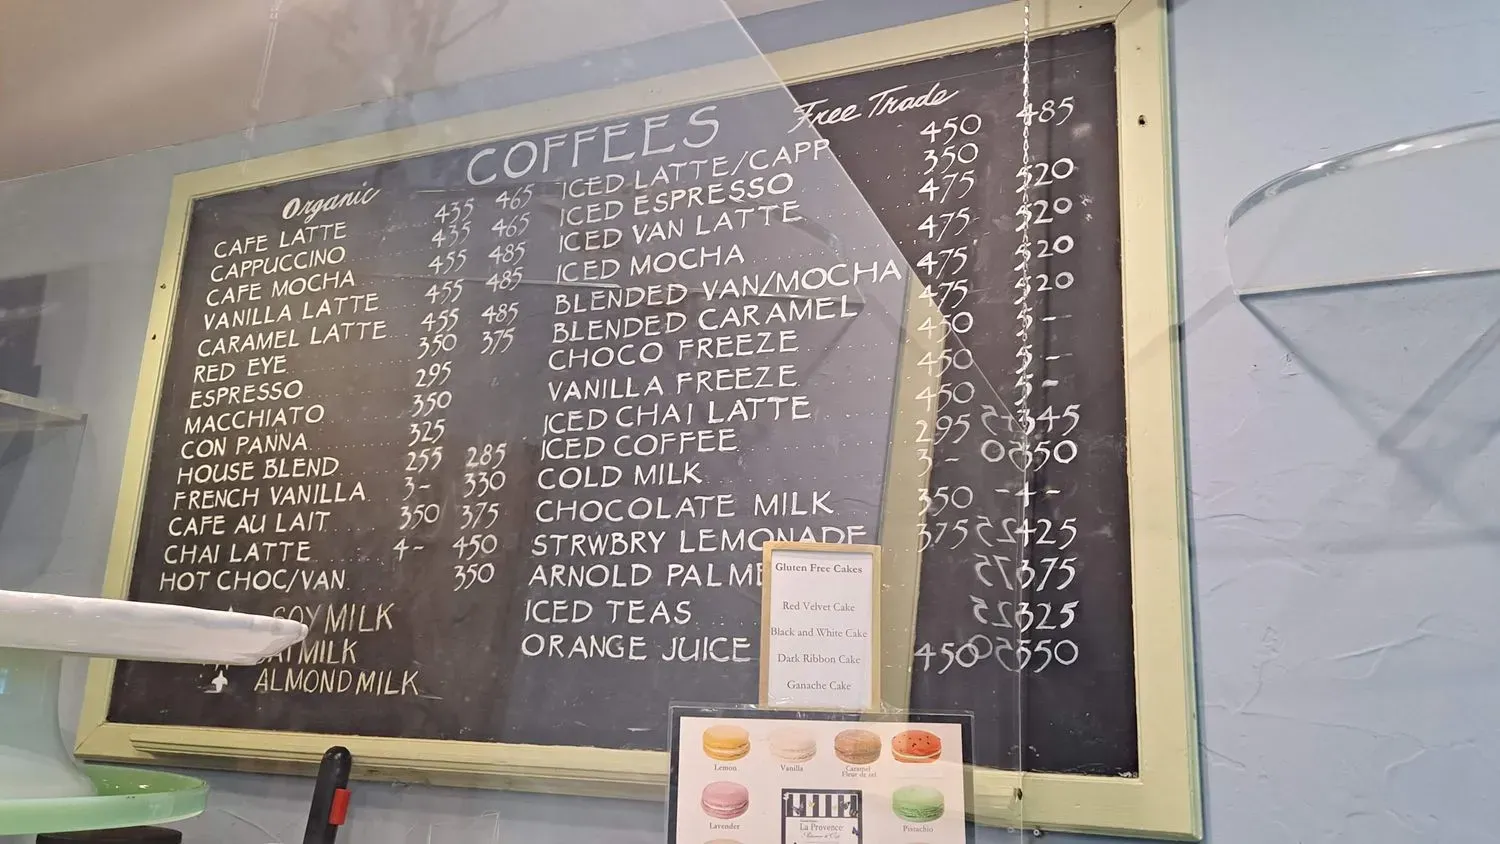 COFFEES
Organic
CAFE LATTE 435 465
CAPPUCCINO 435 465
CAFE MOCHA 455 485
VANILLA LATTE 455 485
CARAMEL LATTE 455 485
RED EYE 350 375
ESPRESSO 295
MACCHIATO 350
CON PANNA 325
HOUSE BLEND 255 285
FRENCH VANILLA 3- 330
CAFE AU LAIT 350 375
CHAI LATTE 4- 450
HOT CHOC/VAN 350
SOY MILK
MILK
ALMOND MILK
Free Trade
ICED LATTE/CAPP 450 485
ICED ESPRESSO 350
ICED VAN LATTE 475 520
ICED MOCHA 475 520
BLENDED VAN/MOCHA 475 520
BLENDED CARAMEL 475 520
CHOCO FREEZE 450 5-
VANILLA FREEZE 450 5-
ICED CHAI LATTE 450 5-
ICED COFFEE 295 345
COLD MILK 3- 350
CHOCOLATE MILK 350 4-
STRWBRY LEMONADE 375 425
ARNOLD PALME 375
ICED TEAS 325
ORANGE JUICE 450 550
Gluten Free Cakes
Red Velvet Cake
Black and White Cake
Dark Ribbon Cake
Ganache Cake
Lemon
Vanilla
Caramel
Fleur de sel
Lavender
La Provence
Pistachio